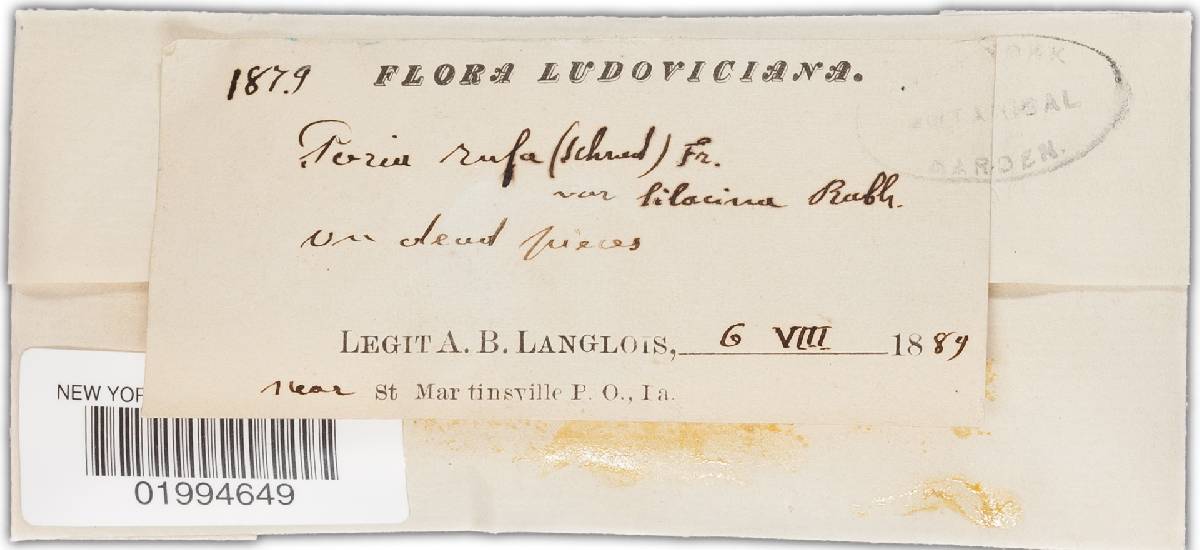 1879
FLORA LUDOVICIANA.
YORK
BOTANICAL
GARDEN.
Poria rufa (Schrad) Fr.
var lilacina Rabh.
on dead pieces
LEGIT A. B. LANGLOIS, 6 VIII 1889
near St Martinsville P. O., La.
NEW YOR
01994649